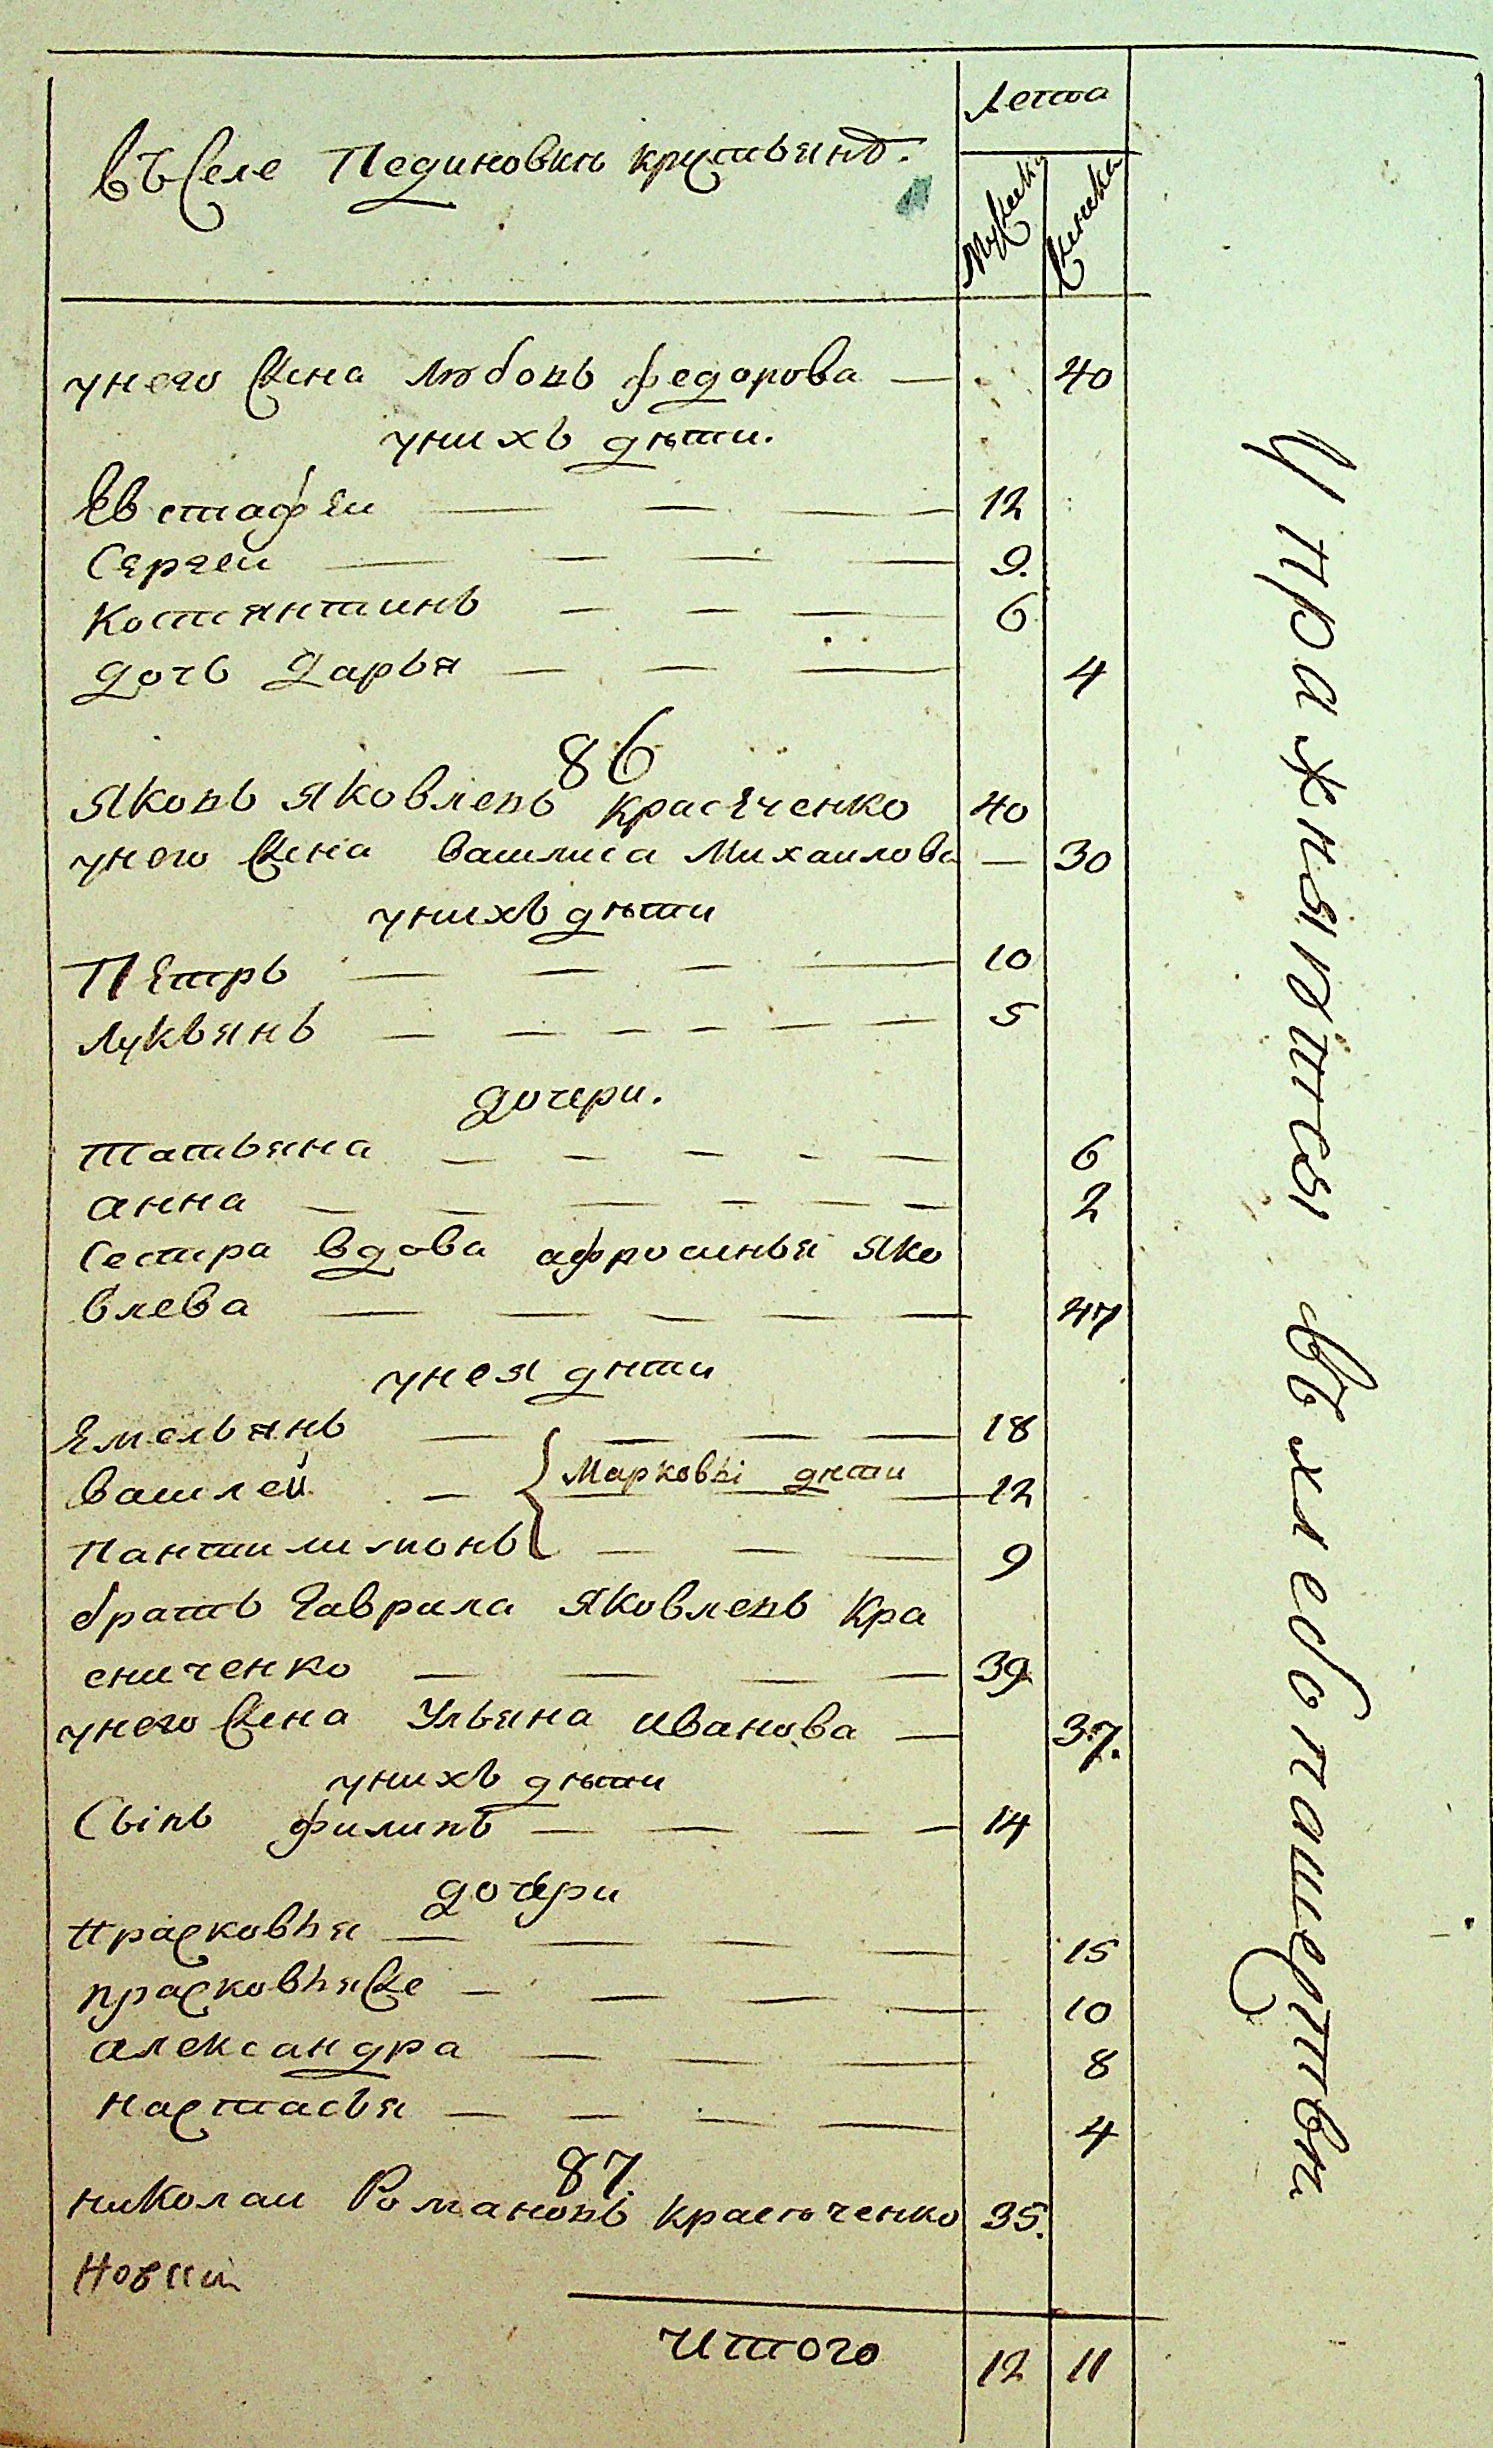 Въ Селе Пединовки крестьянъ.
Лета
Мужеска
Женска
унего Жена Любовь федорова — 40
унихъ дѣти.
Евстафеи — — — 12
Сергеи — — — — 9.
Костянтинъ — — — 6
дочь Дарья — — — 4
86
Яковъ Яковлевъ Красѣченко 40
унего Жена Василиса Михаилова — 30
унихъ дѣти
Петръ — — — — 10
Лукьянъ — — — — — — 5
дочери.
Татьяна — — — — — 6
анна — — — — — — 2
Сестра вдова афросинья Яко
влева — — — — — 47
унея дѣти
Емельянъ — — — — 18
Василей — Марковы дѣти 12
Пантилимонъ — — — 9
братъ Гаврила Яковлевъ Кра
сниченко — — — — 39
унего Жена Ульяна Иванова — 37.
унихъ дѣти
Сынъ филипъ — — — — 14
дочери
прасковья — — — — 15
прасковьяже — — — — 10
александра — — — 8
настасья — — — — 4
87.
николаи Романовъ Красюченко 35.
Новии
Итого 12 11
Упражняются въ хлебопашестви